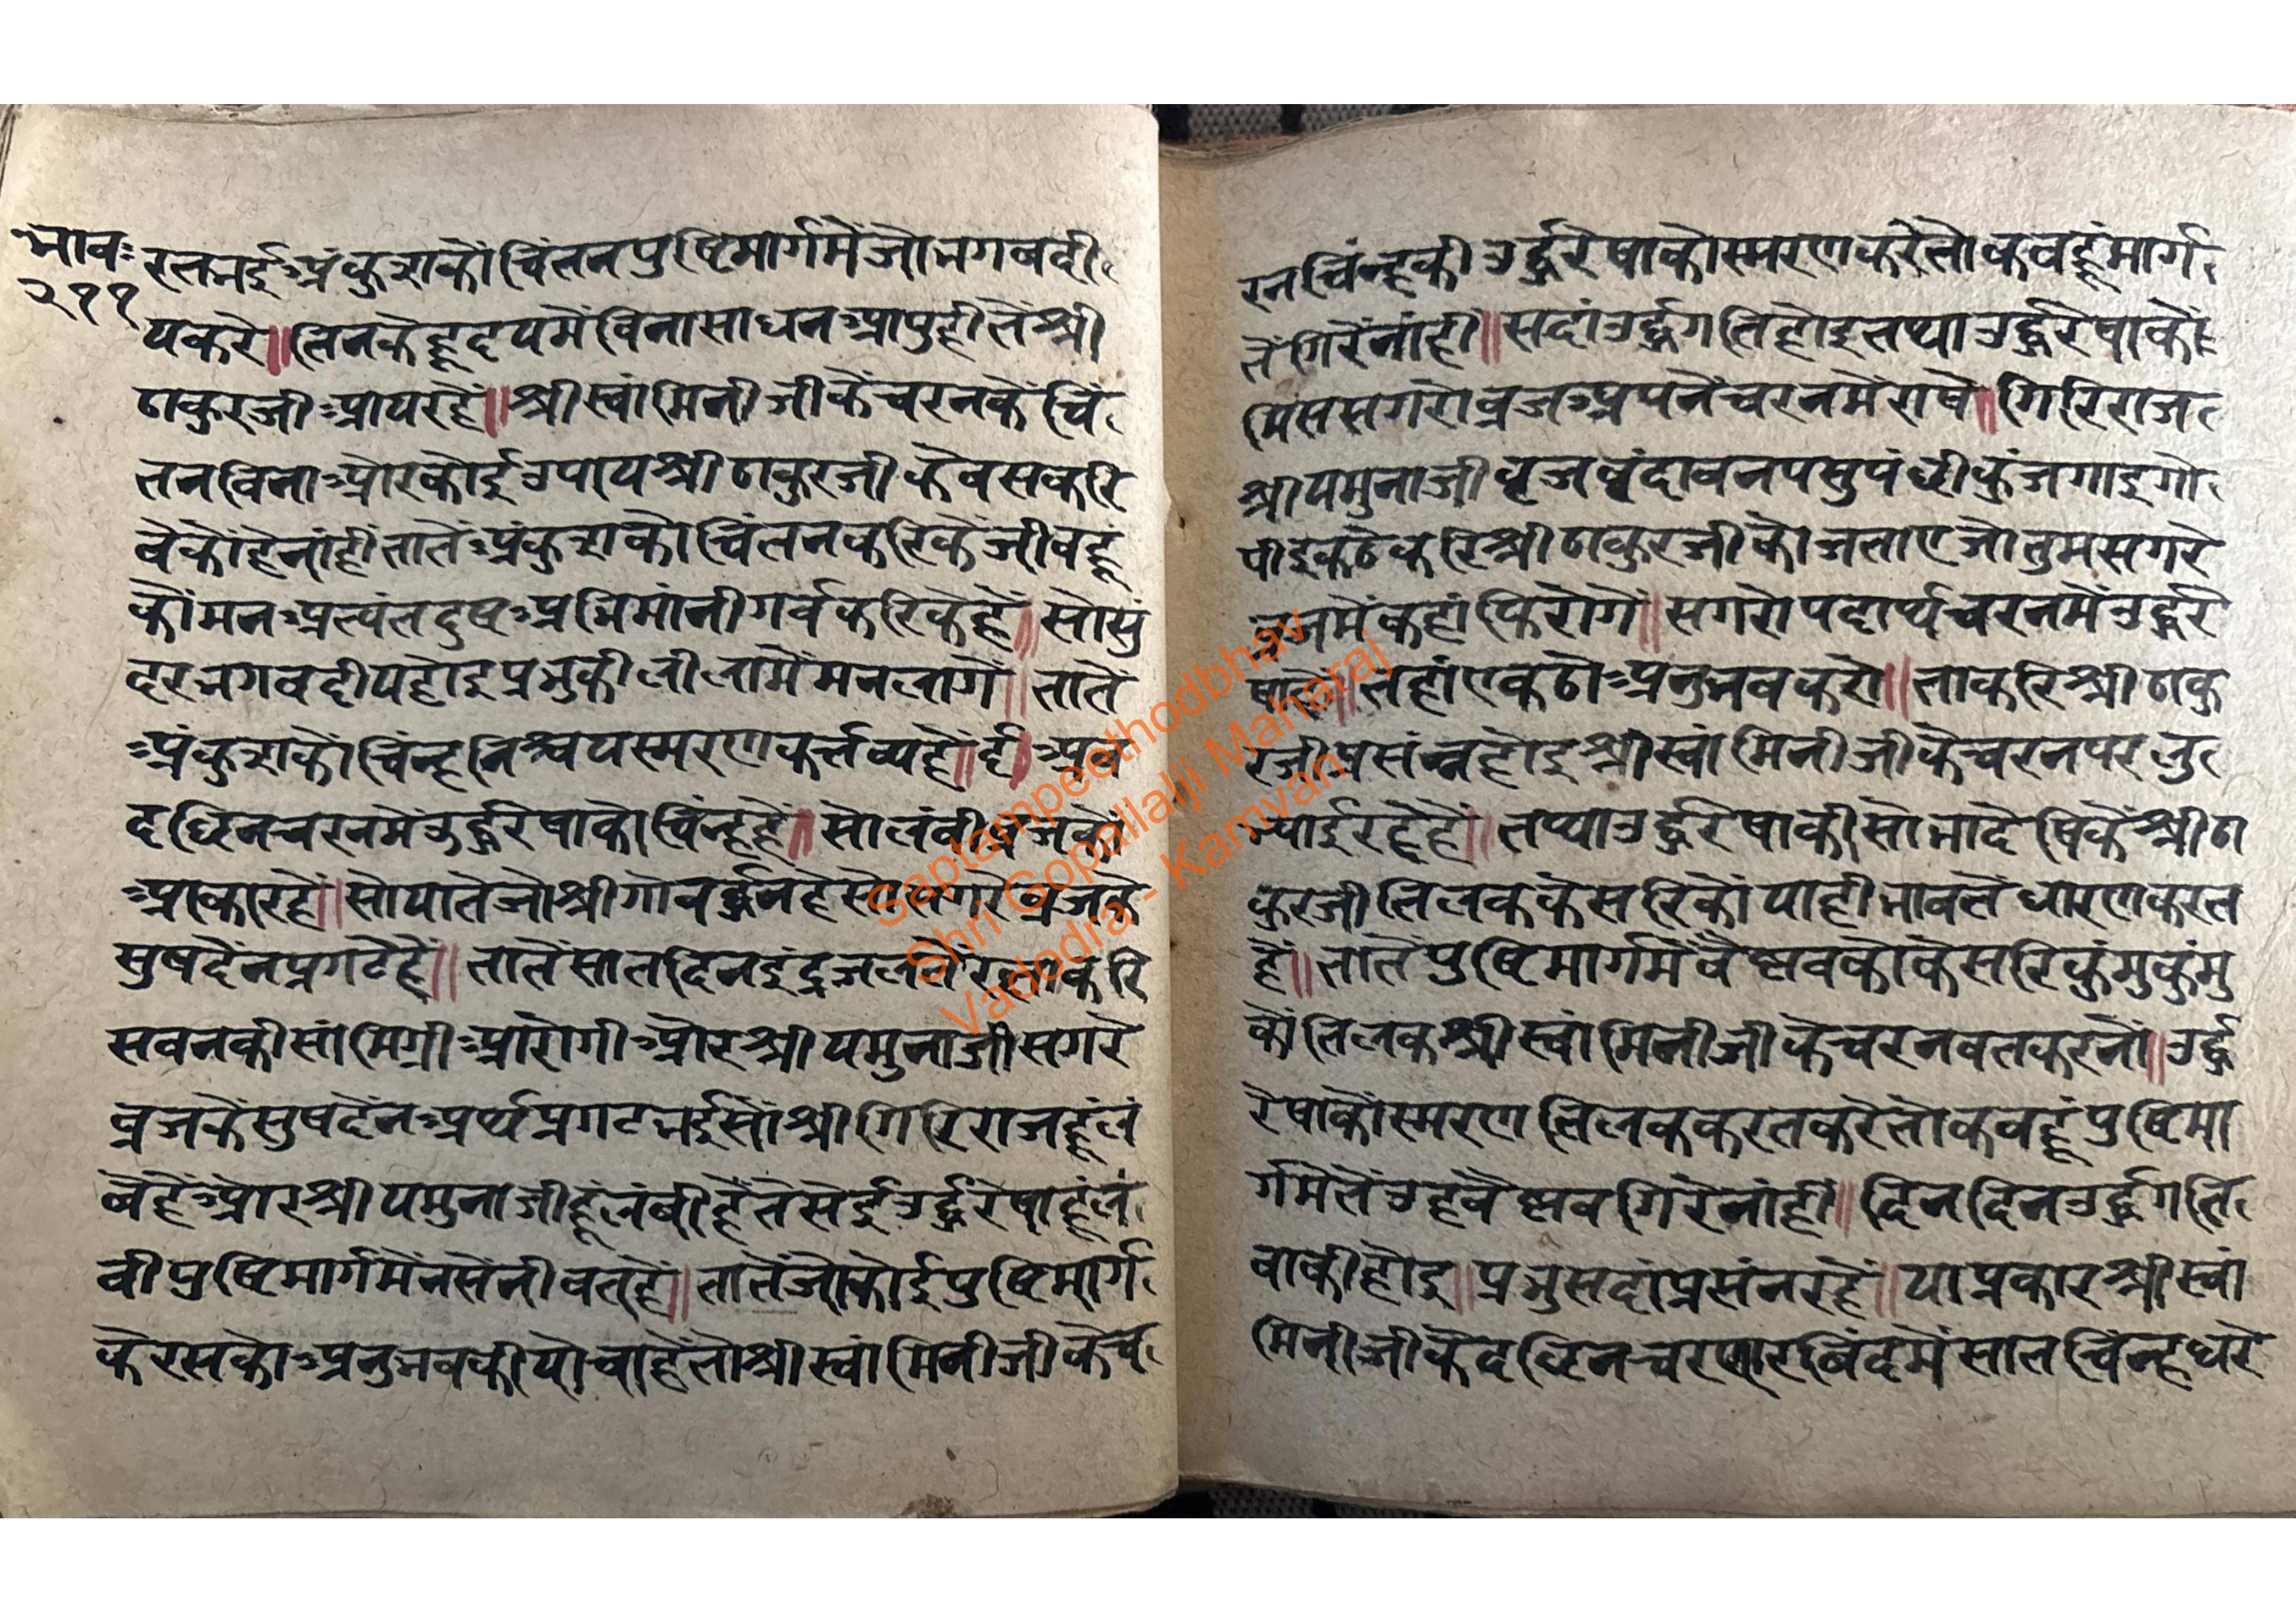 भाव॰
२११
रतभई अंकुशकौं चिंतन पुष्टिमार्गमें जो भगवदी
य करे॥ तिनके हृदयमें विना साधन आपुही तें श्री
ठाकुरजी आय रहें॥ श्रीस्वांमिनीजीकें चरनकें चिं
तन विना और कोई उपाय श्रीठाकुरजीकें वस करि
वेकौं हे नांही तातें अंकुशकौ चिंतन करिकें जीवहू
कौं मन अत्यंत दुष्ट अभिमांनी गर्व करिके हें॥ सो सुं
दर भगवदीय होइ प्रभुकी लीलामें मन लागें॥ तातें
अंकुशकों चिंन्ह निश्चय स्मरण कर्त्तव्य हें॥ ६॥ अब
दछिन चरनमें उर्द्धरेषाको चिंन्ह हें॥ सो लंबी ध्वजकौ
आकार हें॥ सो यातें जो श्रीगोवर्द्धन हे सो सगरे व्रजकें
सुष देंन प्रगटे हें॥ तातें सात दिन इंद्र जलतें रक्षा करि
सवनकी सांमिग्री आरोगी और श्रीयमुनाजी सगरे
व्रजकें सुष देंन अर्थ प्रगट भई सौं श्रीगिरिराजहू लं
बे हें और श्रीयमुनाजीहू लंबी हें तेसेई उर्द्धरेषाहू लं
बी पुष्टिमार्गमें नसेंनी वत हें॥ तातें जो कोई पुष्टिमार्ग
के रसको अनुभव कीयो चाहें तो श्रीस्वांमिनीजीकें च
रनचिंन्हकी उर्द्धरेषाको स्मरण करे तो कबहूं मार्ग
तें गिरें नांही॥ सदां उर्द्धगति होइ तथा उर्द्धरेषाकौं
मिस सगरो व्रज अपनें चरनमें राषे॥ गिरिराज
श्रीयमुनाजी वृज वृंदावन पसु पंछी कुंज गाइ गो
पी इकठे करि श्रीठाकुरजीकों जताए जो तुम सगरे
व्रजमें कहां फिरोगे॥ सगरो पदार्थ चरनमें उर्द्धरे
षातें॥ तहां एकठो अनुभव करो॥ ताकरि श्रीठाकु
रजी प्रसंन्न होइ श्रीस्वांमिनीजीके चरनपर लु
भ्याई रहे हें॥ तथा उर्द्धरेषाकी सोभा देषिकें श्रीठा
कुरजी तिलक केसरिकौं याही भावतें धारण करत
हें॥ तातें पुष्टिमार्गमें वैष्णवकों केसरि कुंमुकुंमु
कौ तिलक श्रीस्वांमिनीजीके चरनवत करनों॥ उर्द्ध
रेषाकौं स्मरण तिलक करत करे तो कबहूं पुष्टिमा
र्गमेतें उह वैष्णव गिरे नांही॥ दिन दिन उर्द्धगति
वाकी होइ॥ प्रभु सदां प्रसंन रहें॥ या प्रकार श्रीस्वां
मिनीजीकें दछिन चरणारबिंदमें सात चिंन्ह धरे
Saptampeethodbhav
Shri Gopallalji Maharaj
Vadodra - Kamvan